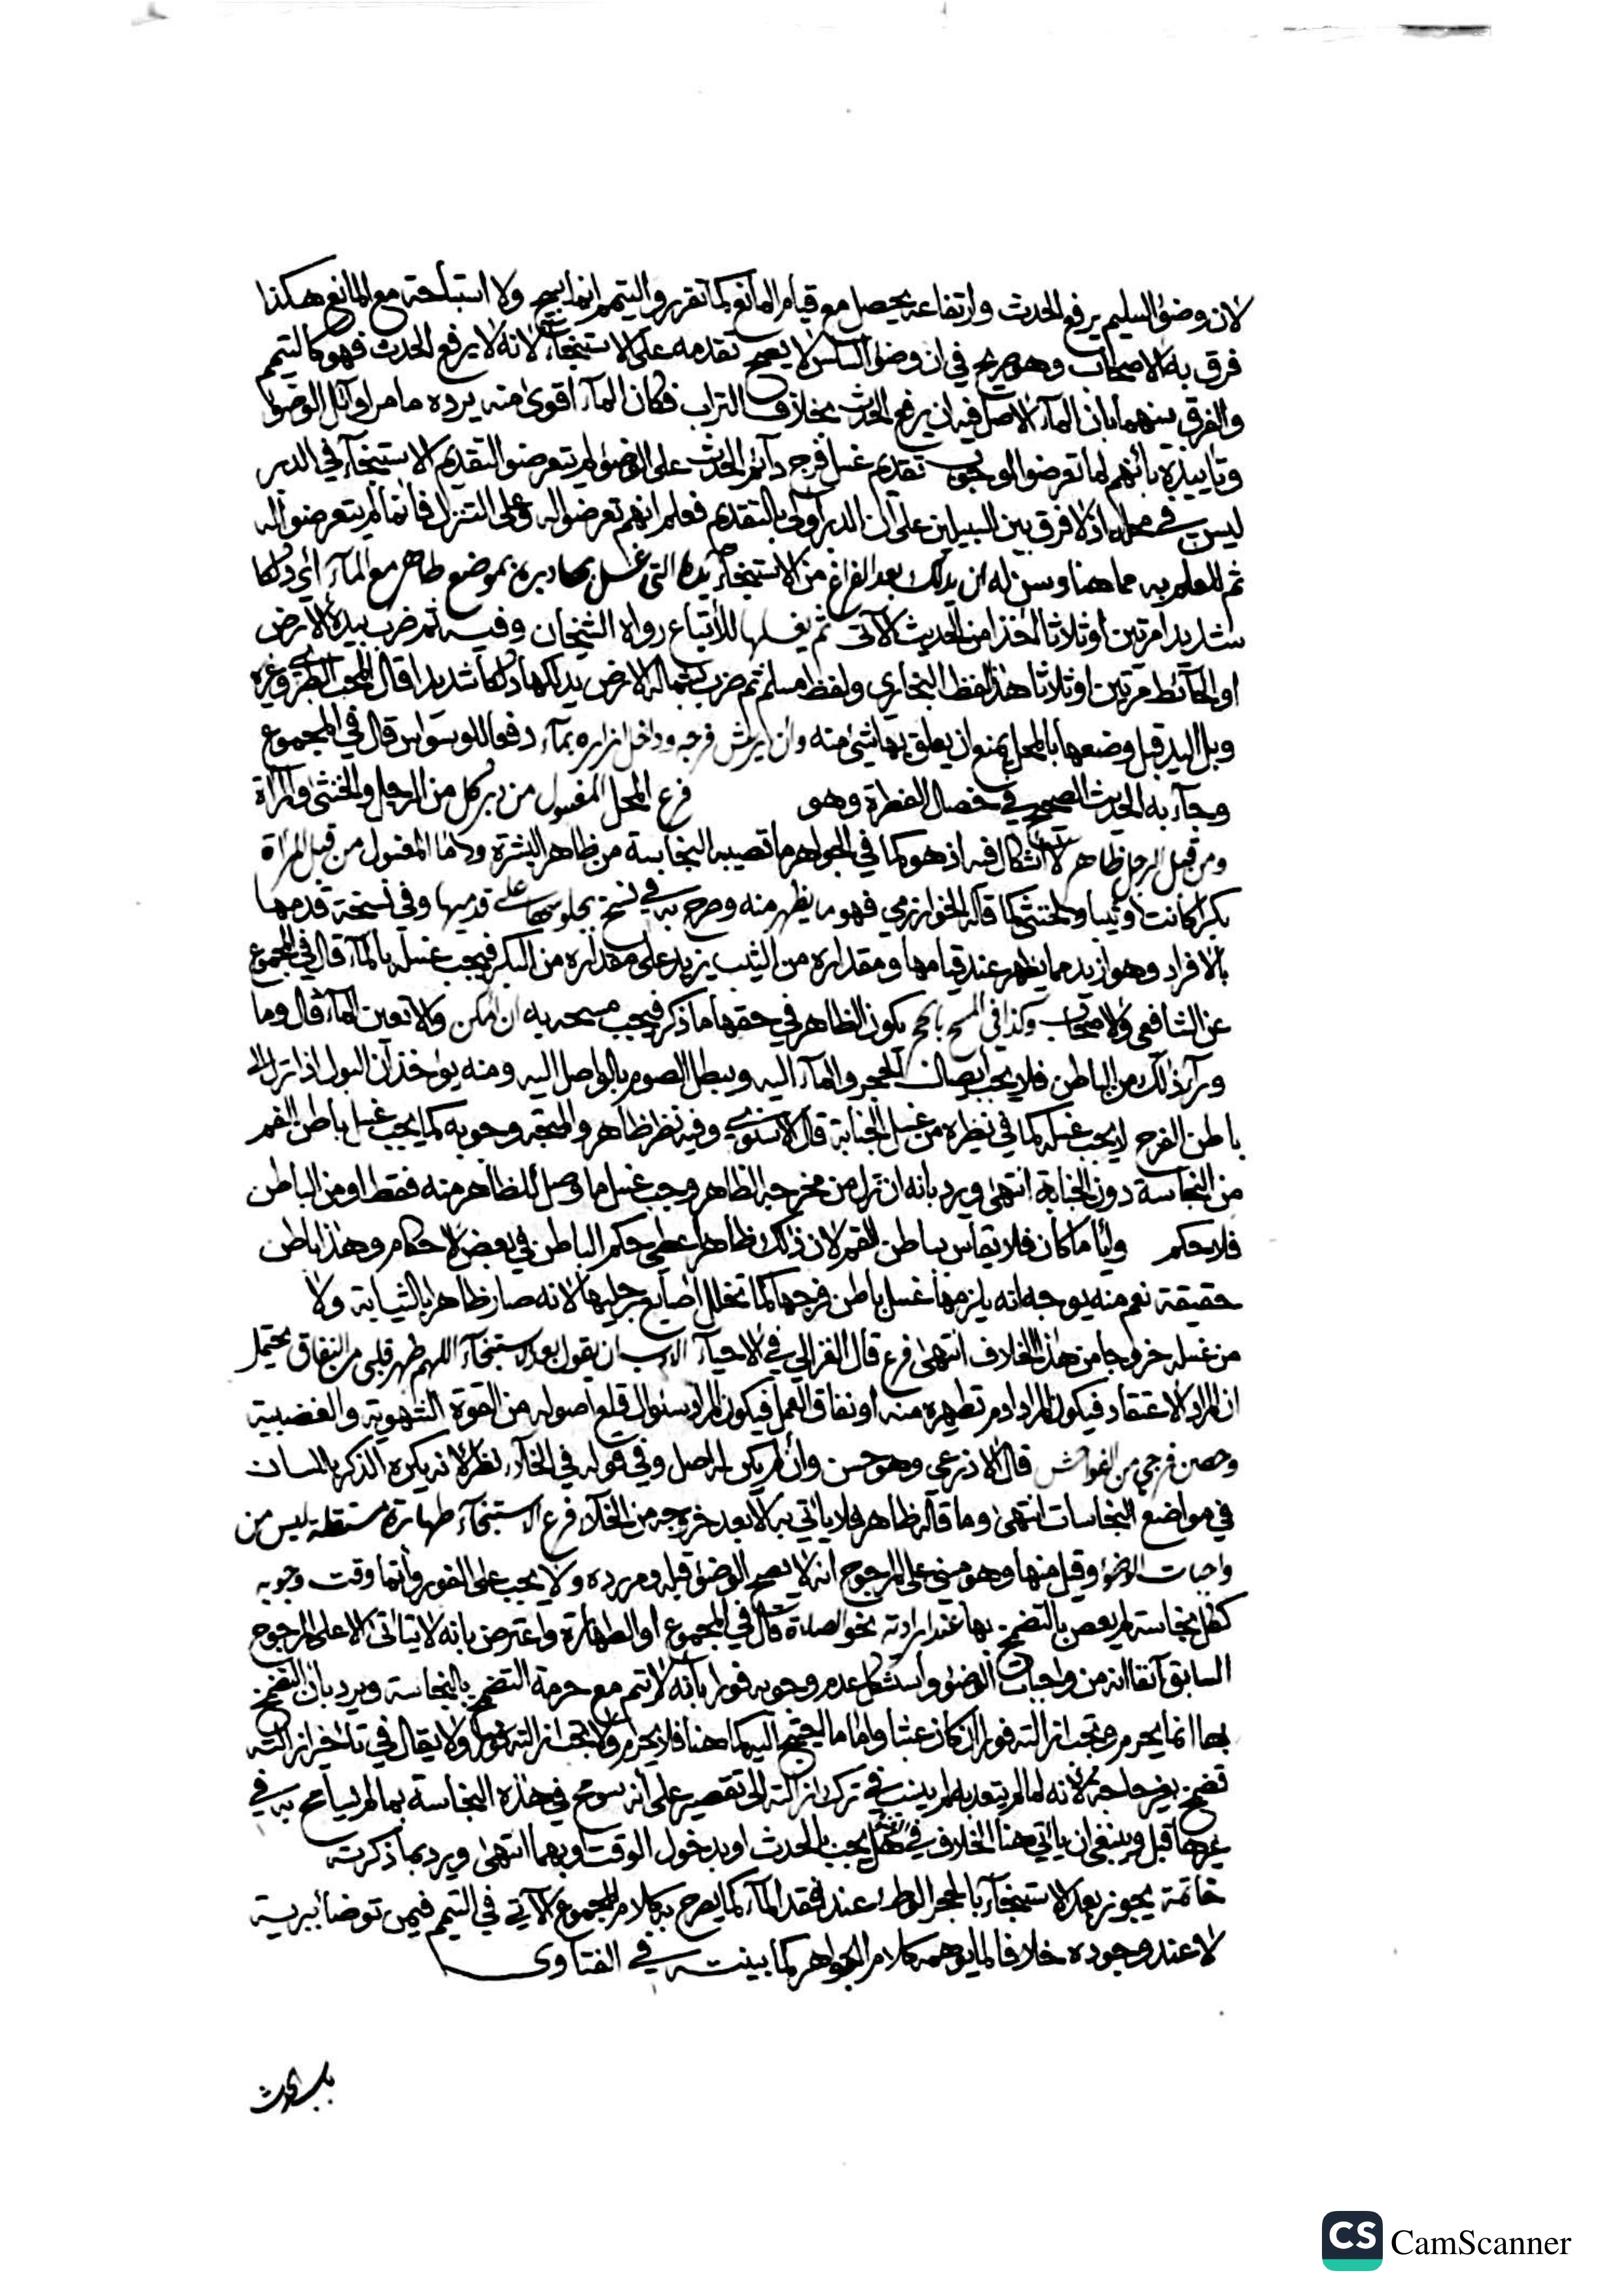 لان وضوء السليم يرفع الحدث وارتفاعه يحصل مع قيام المانع كما تقرر والتيمم انما يبيح ولا استباحة مع المانع هكذا
فرق به الاصحاب وهو صريح في ان وضوء السلس لا يصح تقدمه على الاستنجاء لانه لا يرفع الحدث فهو كالتيمم
والفرق بينهما بان الماء الاصل فيه ان يرفع الحدث بخلاف التراب فكان الماء اقوى منه يرده ما مر اوائل الوضوء
وتاييده بانهم لما تعرضوا لوجوب تقديم غسل فرج دائم الحدث على الوضوء لم يتعرضوا لتقديم الاستنجاء في الدبر
ليس في محله اذ لا فرق بين السبيلين على ان الدبر اولى بالتقديم فعلم انهم تعرضوا له وعلى التنزل فانما لم يتعرضوا له
ثم للعلم به مما هنا وسن له ان يدلك بعد الفراغ من الاستنجاء يده التي غسل بها دبره بموضع طاهر مع الماء اي دلكا
شديدا مرتين او ثلاثا اخذا من الحديث الآتي ثم يغسلها للاتباع رواه الشيخان وفيه ثم ضرب بيده الارض
او الحائط مرتين او ثلاثا هذا لفظ البخاري ولفظ مسلم ثم ضرب بشماله الارض يدلكها دلكا شديدا قال المحب الطبري وغيره
وبل اليد قبل وضعها بالمحل يمنع ان يعلق بها شئ منه وان يرش فرجه وداخل ازاره بماء دفعا للوسواس قال في المجموع
وجاء به الحديث الصحيح في خصال الفطرة وهو فرع المحل المغسول من دبر كل من الرجل والخنثى والمراة
ومن قبل الرجل ظاهر لا اشكال فيه اذ هو كما في الجواهر ما تصيبه النجاسة من ظاهر البشرة واما المغسول من قبل المراة
بكرا كانت او ثيبا والخنثى كما قاله الخوارزمي فهو ما يظهر منه وصرح به في نسخ بجلوسها على قدميها وفي نسخة قدمها
بالافراد وهو ازيد مما يظهر عند قيامها ومقداره من الثيب يزيد على مقداره من البكر فيجب غسله بالماء قال في المجموع
عن الشافعي والاصحاب وكذا في المسح بالحجر يكون الظاهر في حقها ما ذكر فيجب مسحه به ان امكن والا تعين الماء قال وما
وراء ذلك من الباطن فلا يجب ايصال الحجر والماء اليه ويبطل الصوم بالواصل اليه ومنه يؤخذ ان البول اذا نزل الى
باطن الفرج لا يجب غسله كما في نظيره من غسل الجنابة قال الاسنوي وفيه نظر ظاهر والمتجه وجوبه كما يجب غسل باطن الفم
من النجاسة دون الجنابة انتهى ويرد بانه ان نزل من مخرجه الظاهر وجب غسل ما وصل للظاهر منه فقط او من الباطن
فلا حكم وايا ما كان فلا يقاس بباطن الفم لان ذلك ظاهر اعطي حكم الباطن في بعض الاحكام وهذا باطن
حقيقة نعم منه يوجه انه يلزمها غسل باطن فرجها كما تخلل اصابع رجليها لانه صار ظاهرا بالثيابة ولا
من غسله خروجا من هذا الخلاف انتهى فرع قال الغزالي في الاحياء الادب ان يقول بعد الاستنجاء اللهم طهر قلبي من النفاق يحتمل
ان المراد الاعتقاد فيكون المراد ادم تطهيره منه او نفاق العمل فيكون المراد سئوال قلع اصوله من القوة الشهوية والغضبية
وحصن فرجي من الفواحش قال الاذرعي وهو حسن وان لم يكن له اصل وفي قوله في الخلاء نظر لانه يكره الذكر باللسان
في مواضع النجاسات انتهى وما قاله ظاهر فلا ياتي به الا بعد خروجه من الخلاء فرع الاستنجاء طهارة مستقلة ليس من
واجبات الوضوء وقيل منها وهو مبني على المرجوح انه لا يصح الوضوء قبله ومر رده ولا يجب على الفور وانما وقت وجوبه
ككل نجاسة لم يعص بالتضمخ بها عند ارادته نحو الصلاة قال في المجموع او الطهارة واعترض بانه لا يتاتى الا على المرجوح
السابق آنفا انه من واجبات الوضوء واستشكل عدم وجوبه فورا بانه لا يتم مع حرمة التضمخ بالنجاسة ويرد بان التضمخ
بها انما يحرم وتجب ازالته فورا ان كان عبثا واما ما اليه كما هنا فلا يحرم ولا تجب ازالته فورا ولا يقال في تاخير ازالته
تضمخ بغير حاجة لانه لما لم يتعد به لم ينسب في ترك ازالته الى تقصير على انه سومح في هذه النجاسة بما لم يسامح به في
غيرها قيل وينبغي ان ياتي هنا الخلاف في هل يجب بالحدث او بدخول الوقت او بهما انتهى ويرد بما ذكرته
خاتمة يجوز بعد الاستنجاء بالحجر الوطء عند فقد الماء كما يصرح به كلام المجموع الآتي في التيمم فيمن توضا ببرية
لا عند وجوده خلافا لما يوهمه كلام الجواهر كما بينته في الفتاوى
باب الحدث
CS CamScanner